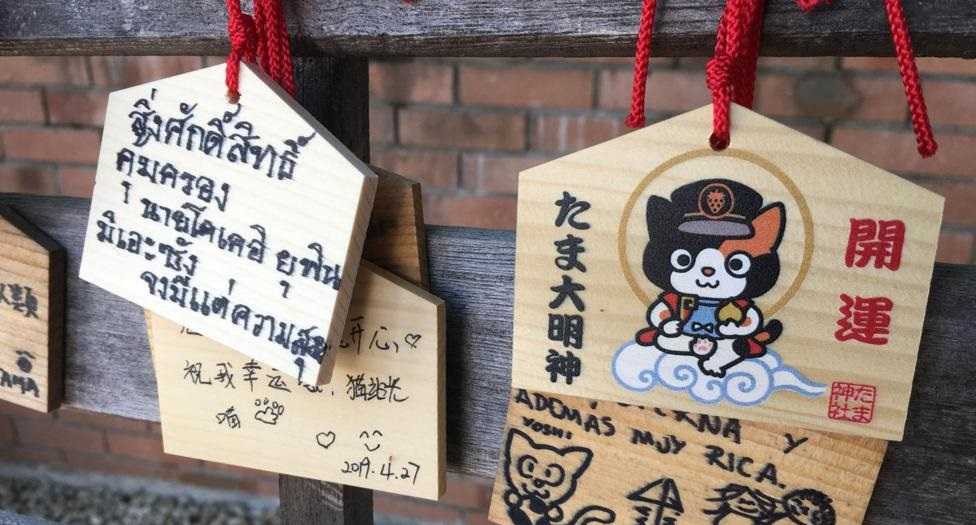 สิ่งศักดิ์สิทธิ์
คุมครอง
นายโคเคอิ ยุพิน
มิเอะซัง
จงมีแต่ความสุข
开心,♡
祝我幸运
猫站长
喵
♡
2019.4.27
類
AMA
たま大明神
開運
たま神社
ADEMAS MUY RICA.
Y
YOSHI